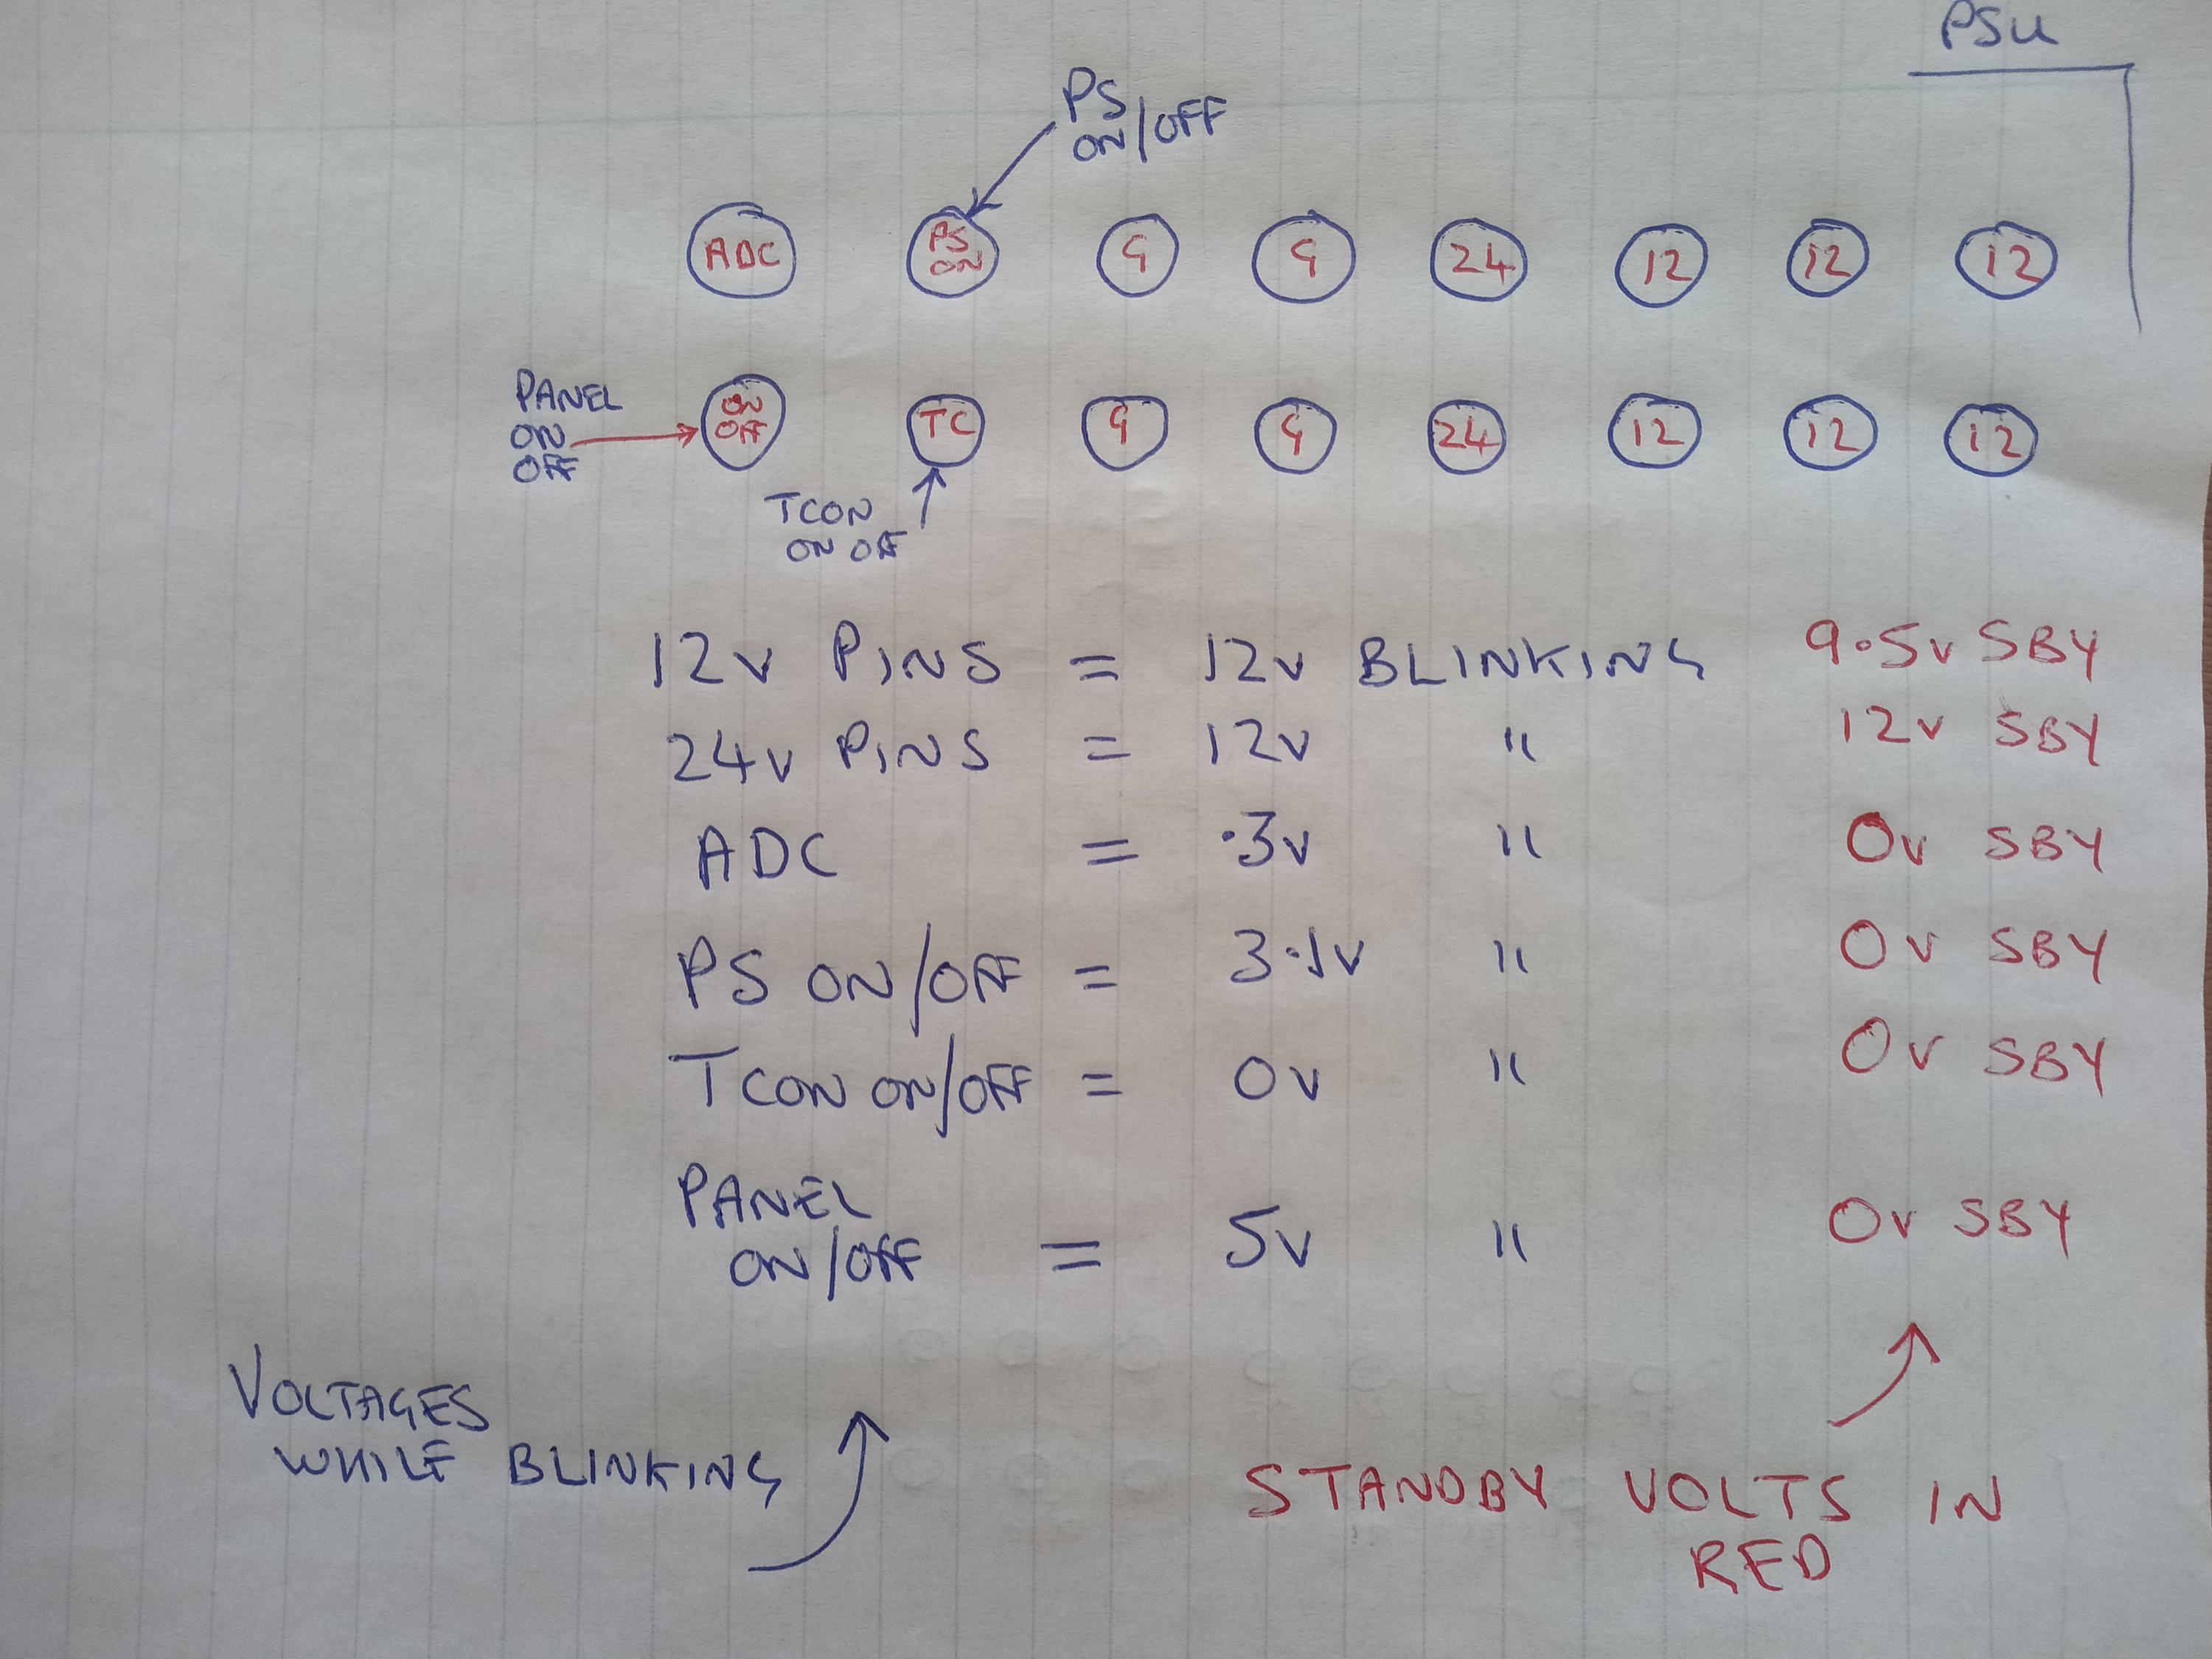 PSU
PS
ON/OFF
ADC PS ON G G 24 12 12 12
PANEL
ON
OFF
ON OFF TC G G 24 12 12 12
TCON
ON OFF
12v PINS = 12v BLINKING 9.5v SBY
24v PINS = 12v " 12v SBY
ADC = .3v " 0v SBY
PS ON/OFF = 3.1v " 0v SBY
TCON ON/OFF = 0v " 0v SBY
PANEL
ON/OFF = 5v " 0v SBY
VOLTAGES
WHILE BLINKING
STANDBY VOLTS IN
RED